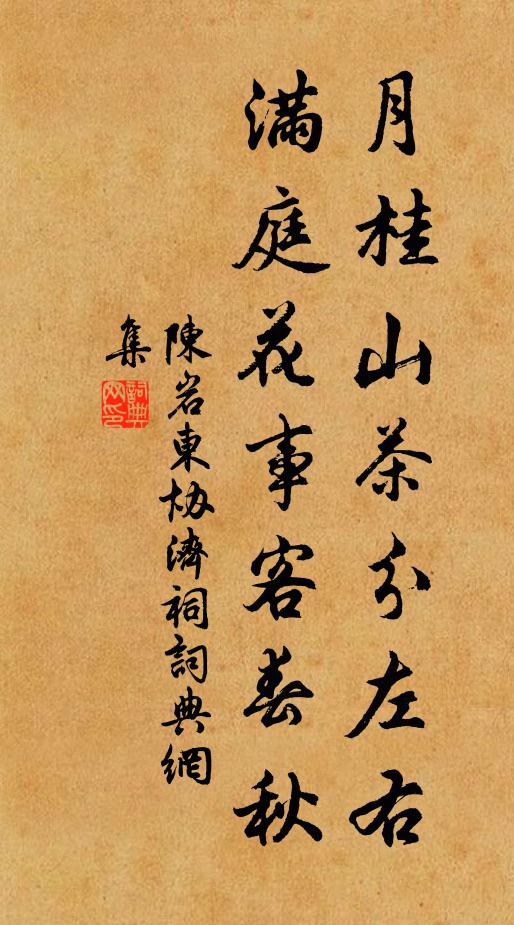 月桂山茶分左右
滿庭花事客春秋
陳岩東協濟祠詞典網
集
詞典網印